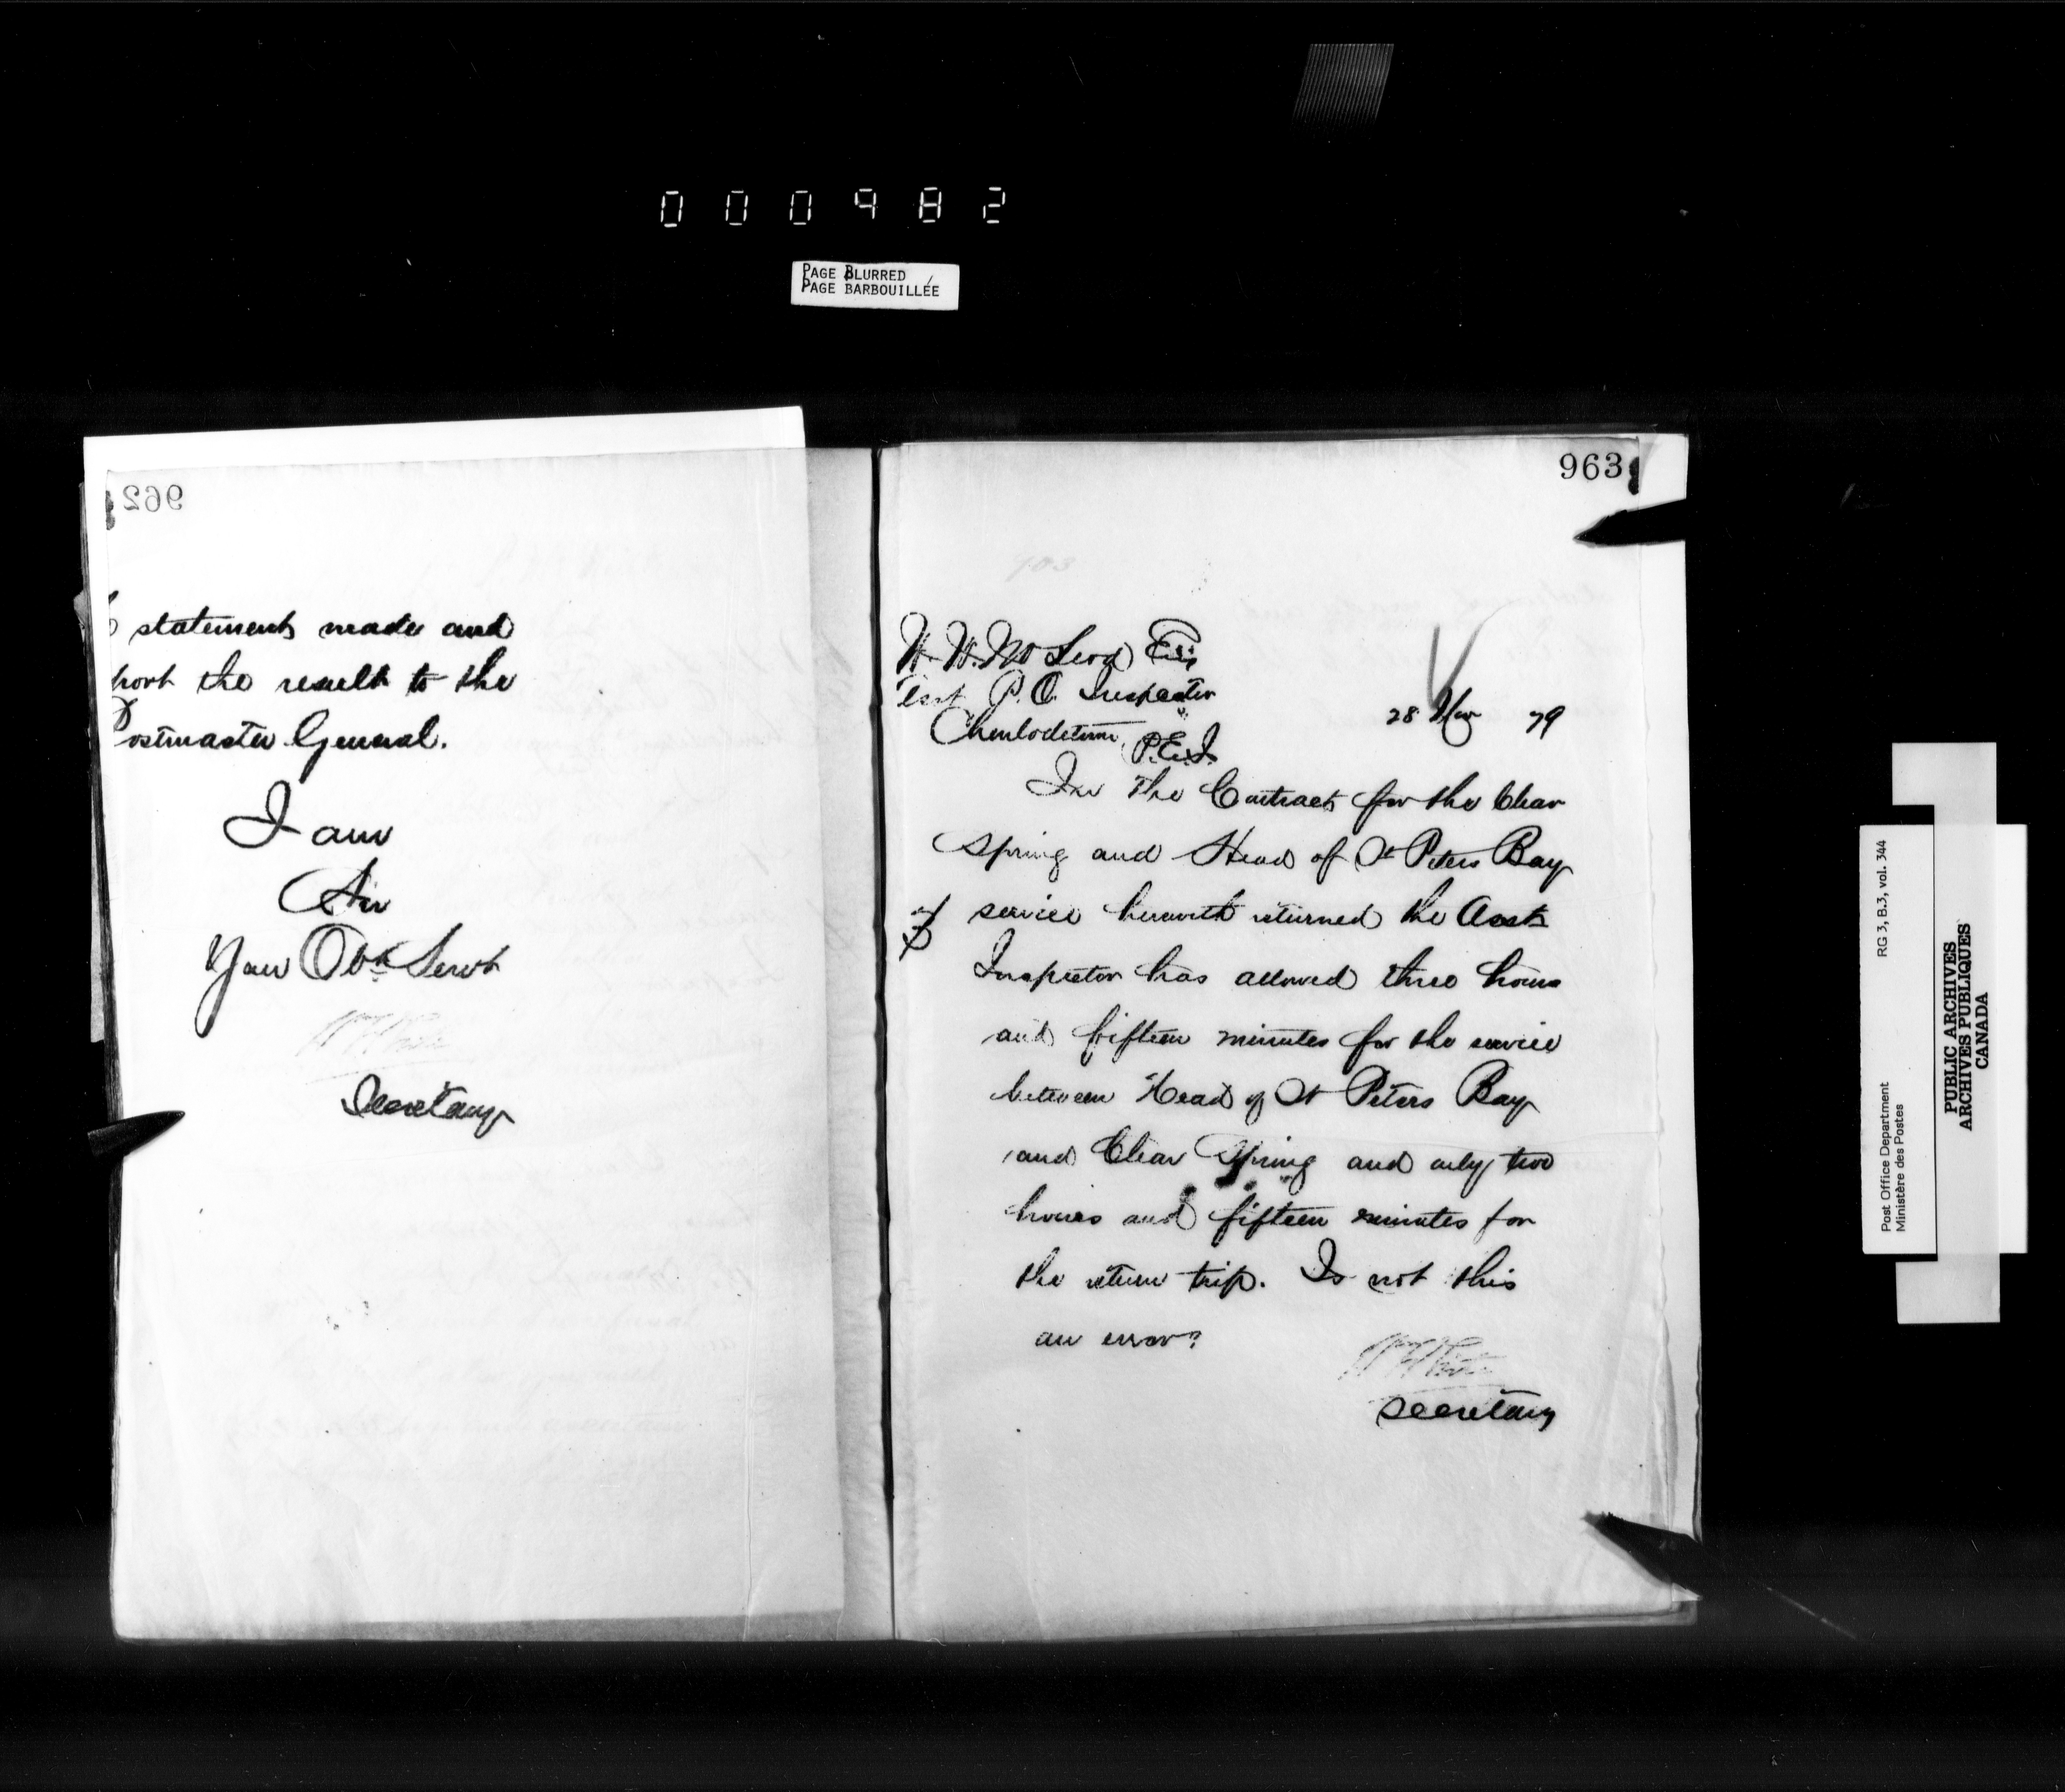 000982
PAGE BLURRED
PAGE BARBOUILLÉE
962
statements made and
port the result to the
Postmaster General.
I am
Sir
Your Obt Servt
Secretary
963
W. W. McLeod Esq
Asst P. O. Inspector
Charlottetown P.E.I.
28 Nov 79
In the Contract for the Clear
Spring and Head of St Peters Bay
service herewith returned the Asst
Inspector has allowed three hours
and fifteen minutes for the service
between Head of St Peters Bay
and Clear Spring and only two
hours and fifteen minutes for
the return trip. Is not this
an error?
Secretary
Post Office Department RG 3, B.3, vol. 344
Ministère des Postes
PUBLIC ARCHIVES
ARCHIVES PUBLIQUES
CANADA